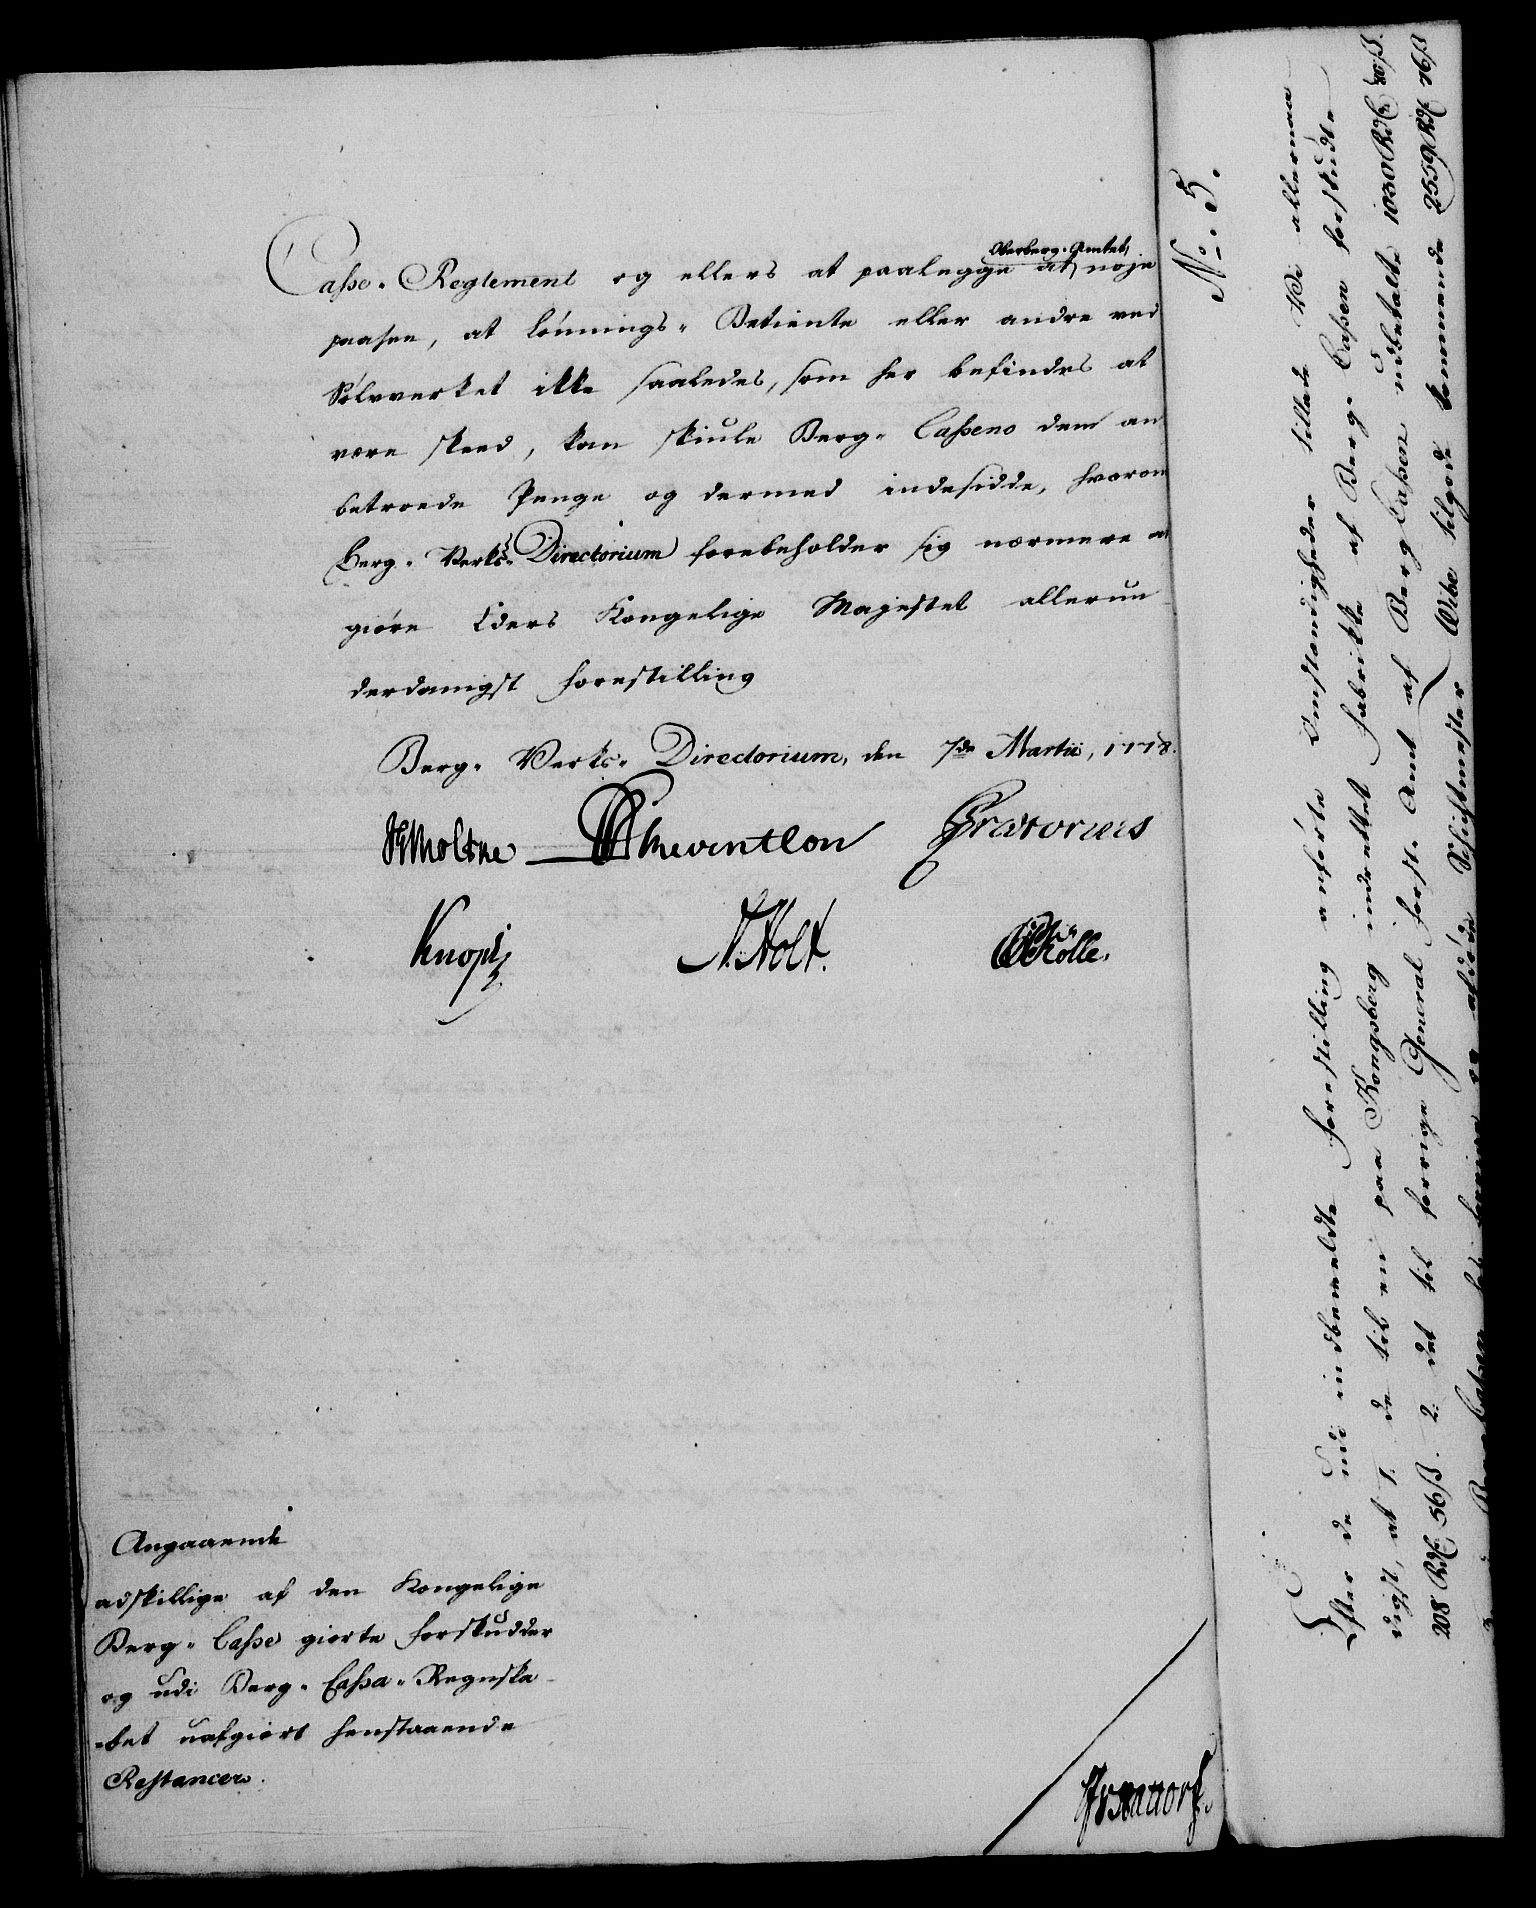 Casse-Reglement og ellers at paalegge Oberberg-Amtet, at nøje
paasee, at Lønnings-Betiente eller andre ved
Sølvverket ikke saaledes, som her befindes at
være skeed, kan skiule Berg-Cassens dem an
betroede Penge og dermed indesidde, hvorom
Berg-Verks-Directorium forebeholder sig nærmere at
giøre Eders Kongelige Majestet allerun
derdanigst Forestilling
Berg-Verks-Directorium, den 7de Martii, 1778.
Moltke Reventlou Prætorius
Knoph N. Holt. Rølle.
Angaaende
adskillige af den Kongelige
Berg-Casse giorte Forskudder
og udi Berg-Cassa-Regnska-
-bet uafgiort henstaaende
Restancer.
No. 5.
Efter de udi indbemeldte Forestilling anførte Omstændigheder tillade Vi allernaa-
digst, at 1. de til en paa Kongsberg indrettet Fabrikke af Berg-Cassen forskudte
208 Rd 56 ß. 2. det til forrige General Forst-Amt af Berg Cassen udbetalte 1030 Rd 80 ß.
3. Berg Cassen hos forrige og afdøde Schichtmester Wibe tilgode kommende 2559 Rd 76 ß